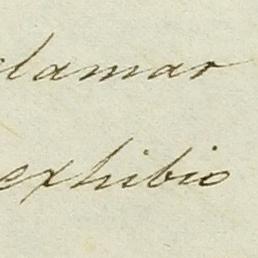 clamar
exhibio